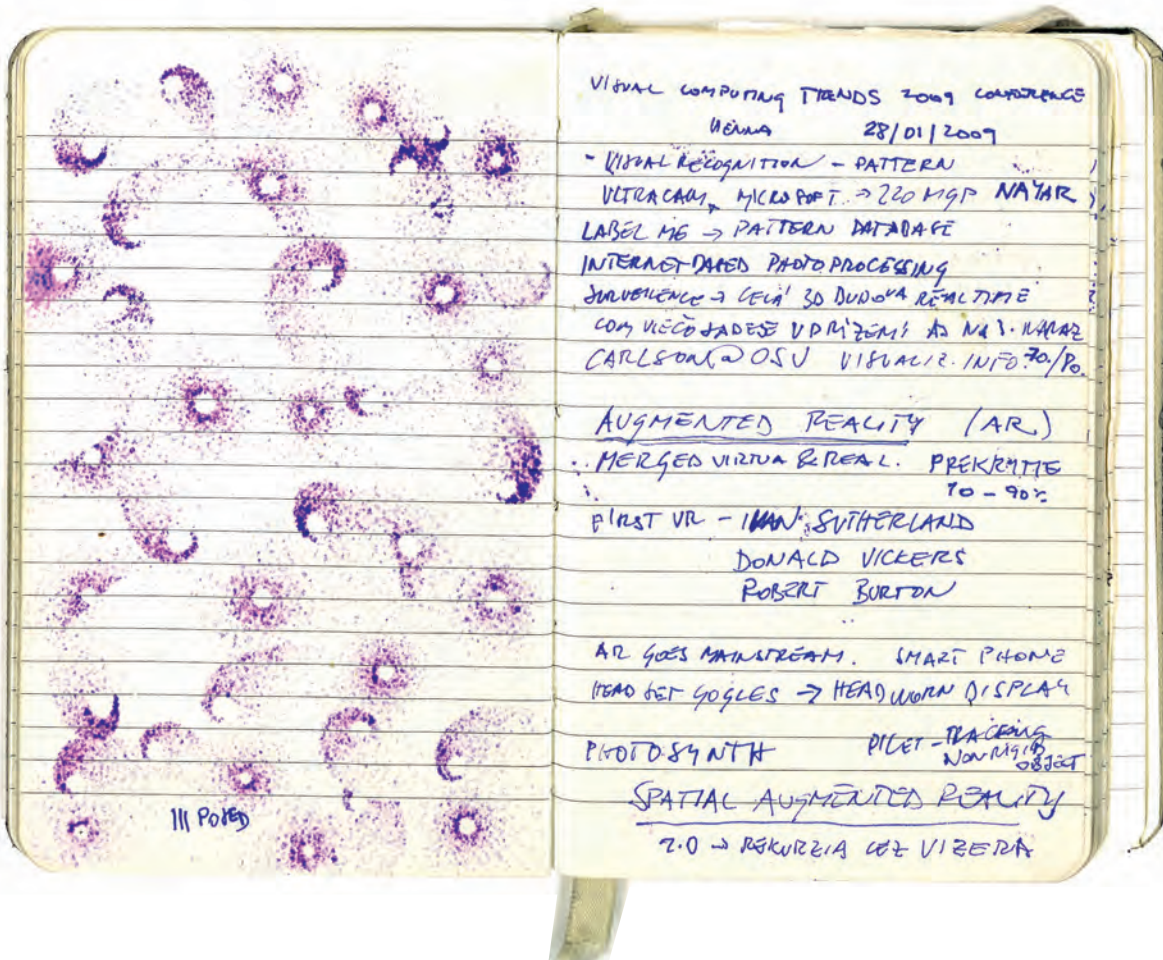 III POSED
VISUAL COMPUTING TRENDS 2009 CONFERENCE
VIENNA 28/01/2009
- VISUAL RECOGNITION - PATTERN
ULTRACAM, MICROSOFT → 220 MGP NAYAR
LABEL ME → PATTERN DATABASE
INTERNET-BASED PHOTOPROCESSING
SURVEILENCE → CELÁ 3D BUDOVA REALTIME
V PRÍZEMÍ AJ NA 3. NARAZ
CARLSON@OSU VISUALIZ. INFO 70./80.
AUGMENTED REALITY (AR)
MERGED VIRTUA & REAL. PREKRYTIE
10-90%
FIRST VR - IVAN SUTHERLAND
DONALD VICKERS
ROBERT BURTON
AR GOES MAINSTREAM. SMART PHONE
HEAD SET GOGLES → HEAD WORN DISPLAY
PHOTOSYNTH PILET - TRACKING
NON RIGID
OBJECT
SPATIAL AUGMENTED REALITY
2.0 → REKURZIA CEZ VIZERA